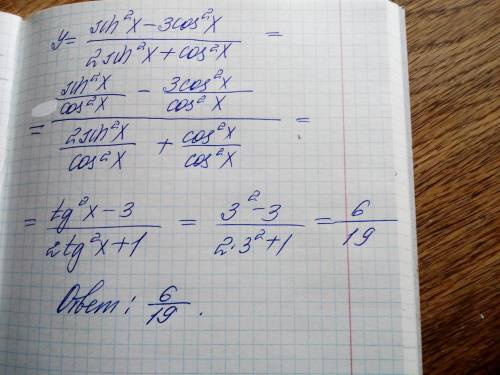 y = (sin²x − 3cos²x) / (2sin²x + cos²x) =
= (sin²x/cos²x − 3cos²x/cos²x) / (2sin²x/cos²x + cos²x/cos²x) =
= (tg²x − 3) / (2tg²x + 1) = (3² − 3) / (2·3² + 1) = 6/19
Ответ: 6/19.